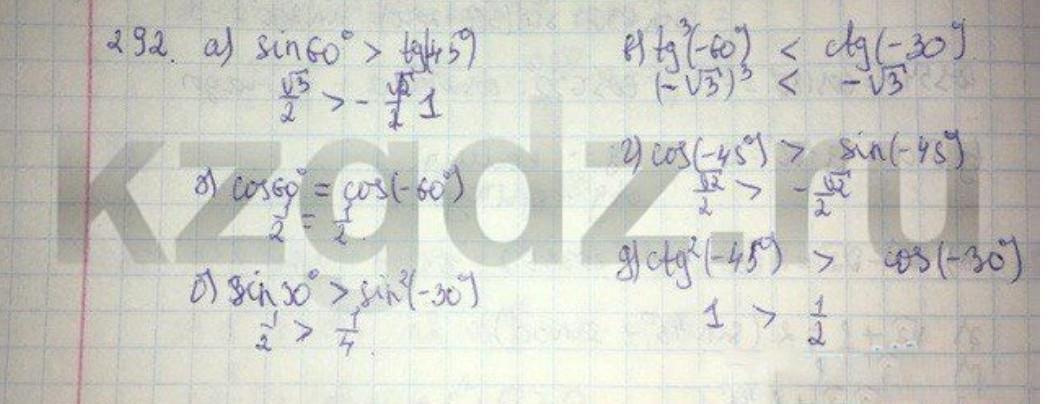 292. а) sin60° > tg(45°)
√3/2 > - 1
б) cos60° = cos(-60°)
1/2 = 1/2
б) sin30° > sin²(-30°)
1/2 > 1/4
в) tg³(-60°) < ctg(-30°)
(-√3)³ < -√3
г) cos(-45°) > sin(-45°)
√2/2 > -√2/2
д) ctg²(-45°) > cos(-30°)
1 > 1/2
kzgdz.ru